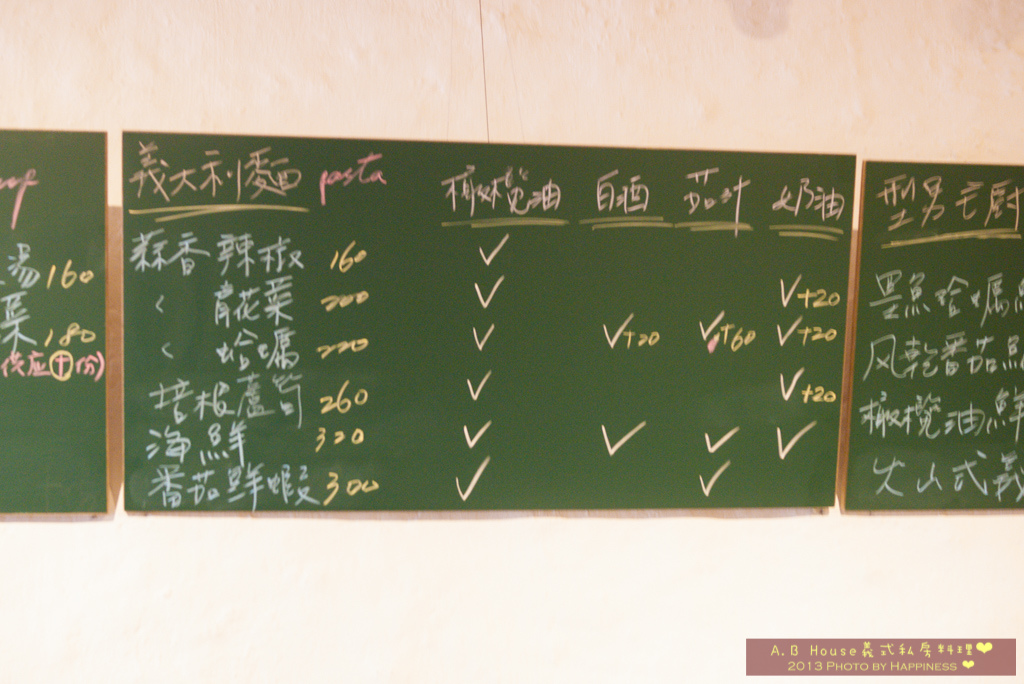 湯 160
菜 180
供应十份)
義大利麵 pasta 橄欖油 白酒 茄汁 奶油
蒜香辣椒 160 ✓
〈 青花菜 200 ✓ ✓+20
〈 蛤蠣 220 ✓ ✓+20 ✓+60 ✓+20
培根蘆筍 260 ✓ ✓+20
海鮮 320 ✓ ✓ ✓ ✓
番茄鮮蝦 300 ✓ ✓
型男主廚
墨魚蛤蠣
风乾番茄
橄欖油鮮
火山式義
A.B House義式私房料理❤
2013 PHOTO BY HAPPINESS ❤